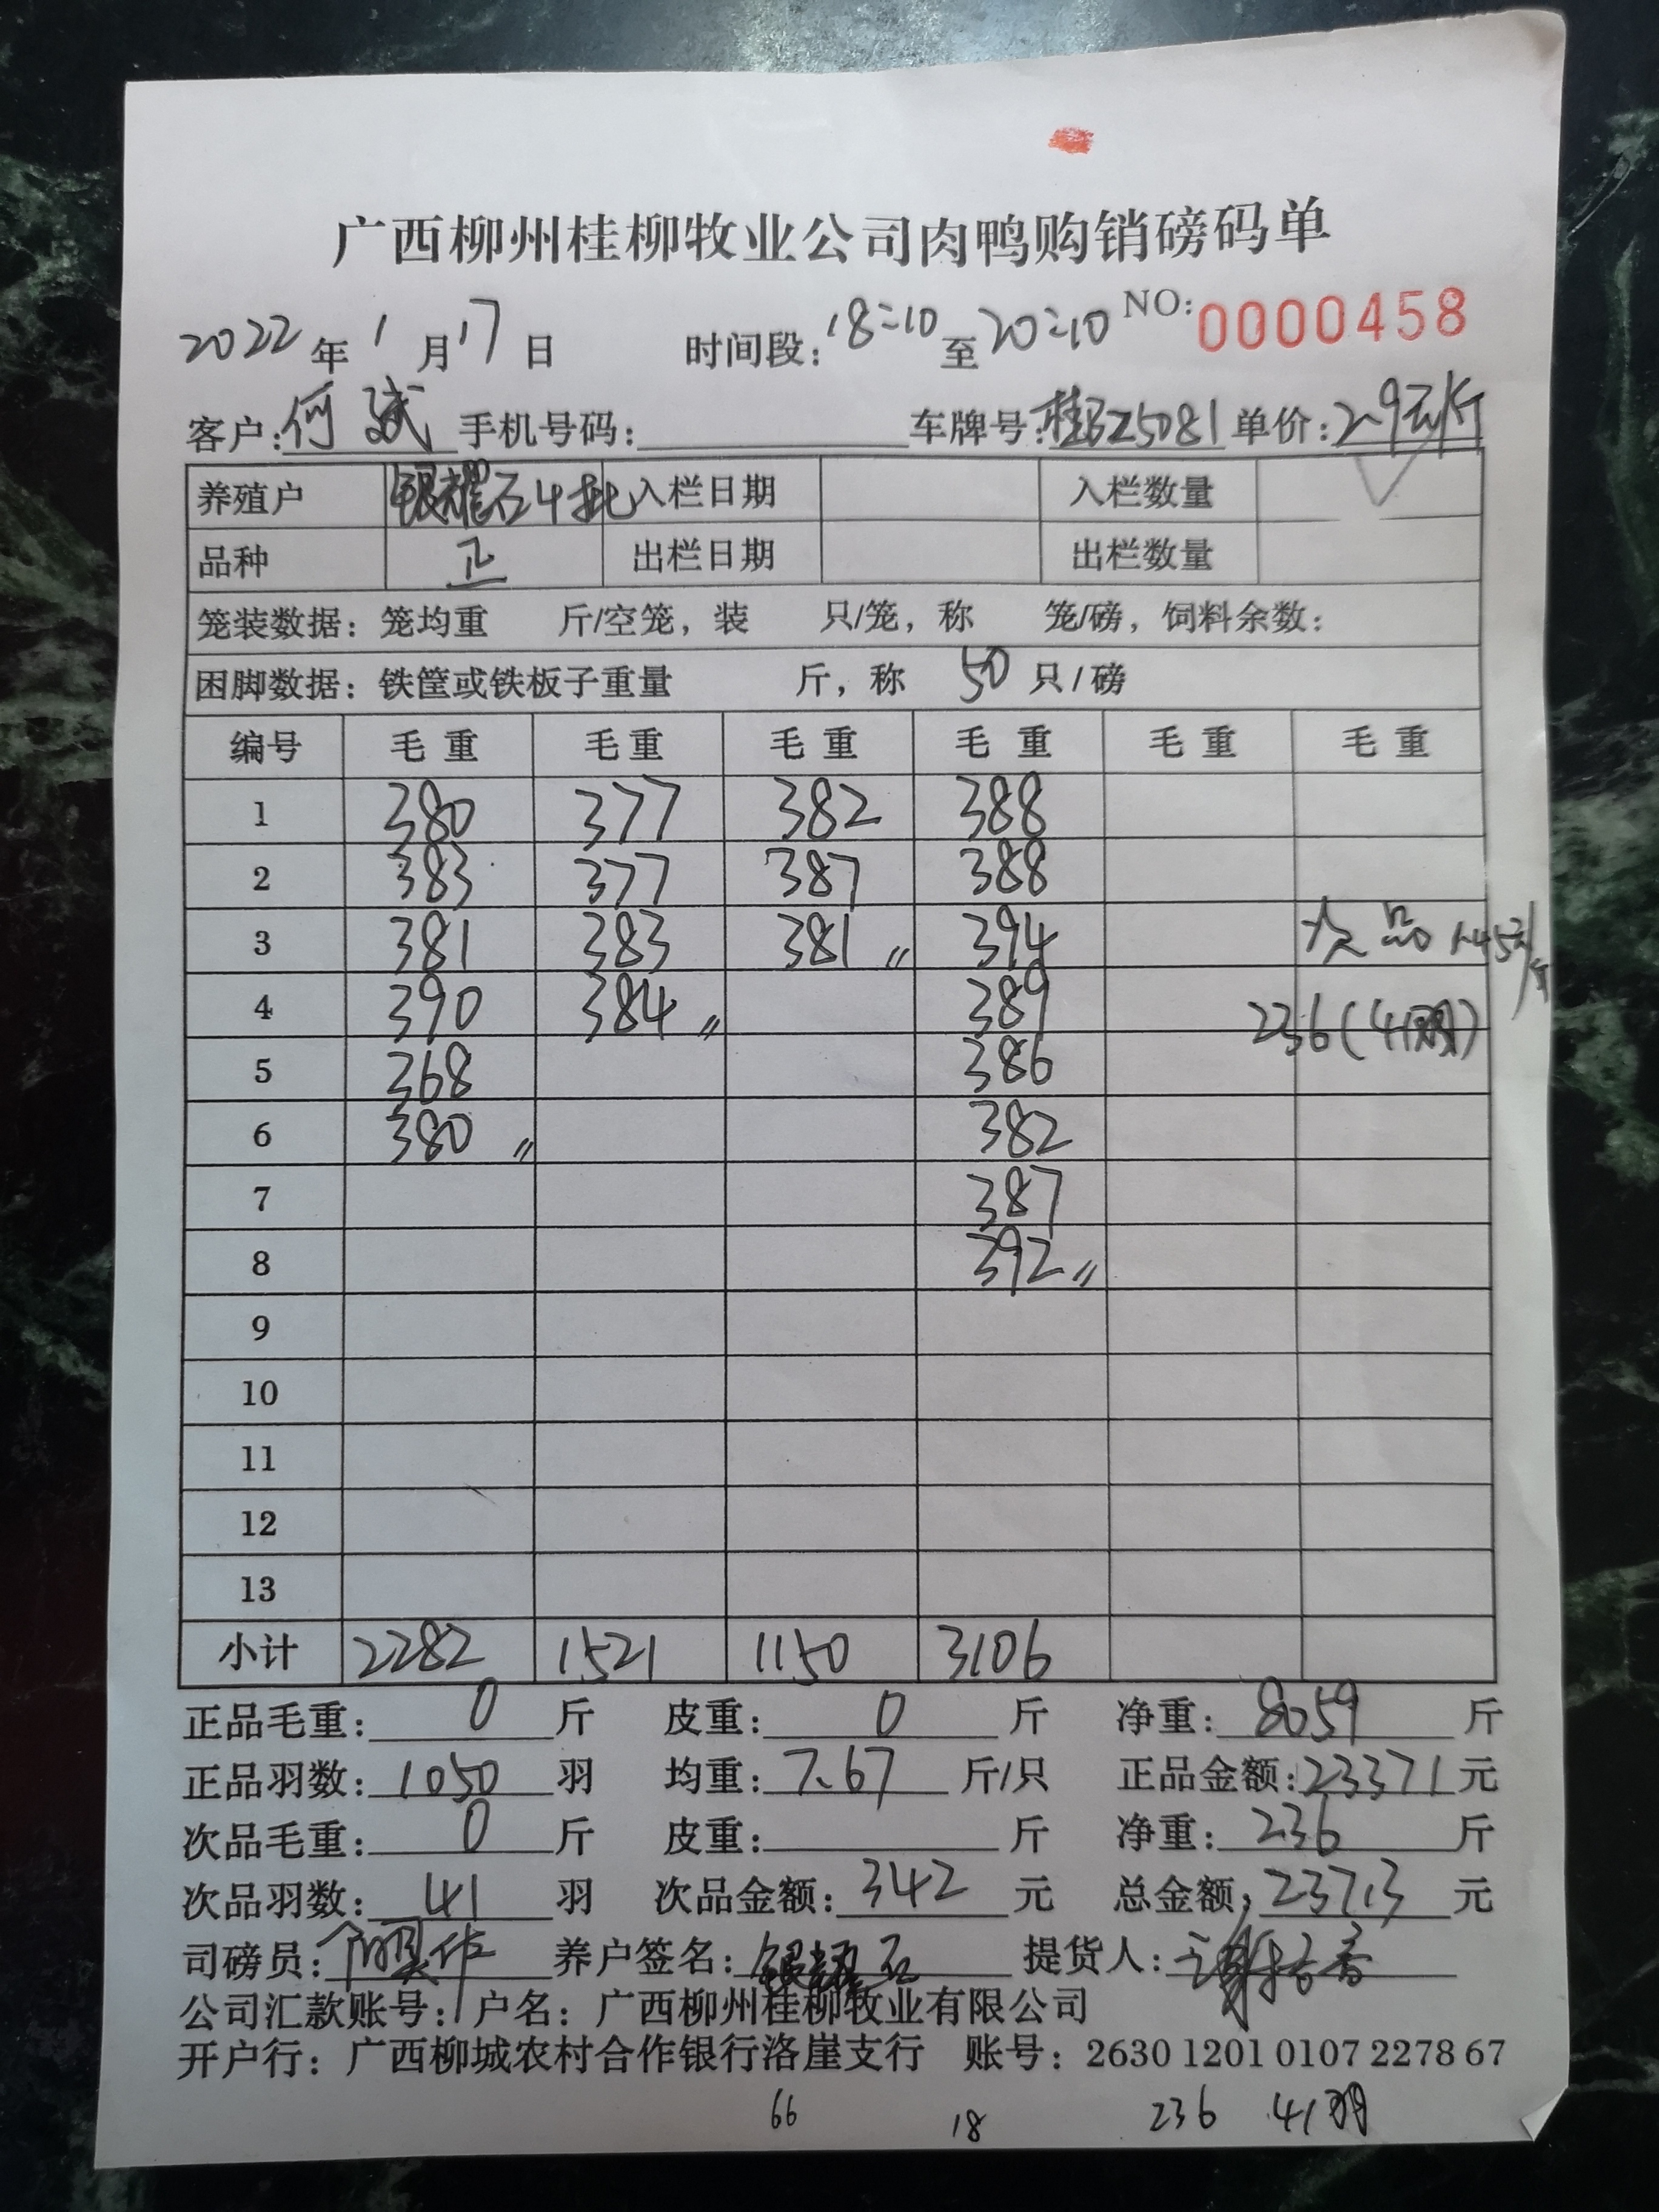 广西柳州桂柳牧业公司肉鸭购销磅码单
2022年1月17日 时间段:18:10至20:10 NO:0000458
客户:何斌 手机号码: 车牌号:桂BZ5081 单价:2.9元/斤
养殖户 银耀石4批 入栏日期 入栏数量
品种 正 出栏日期 出栏数量
笼装数据:笼均重 斤/空笼,装 只/笼,称 笼/磅,饲料余数:
困脚数据:铁筐或铁板子重量 斤,称 50 只/磅
编号 毛重 毛重 毛重 毛重 毛重 毛重
1 380 377 382 388
2 383 377 387 388
3 381 383 381 〃 394 次品 1.45元/斤
4 390 384 〃 389 236(41羽)
5 368 386
6 380 〃 382
7 387
8 392 〃
9
10
11
12
13
小计 2282 1521 1150 3106
正品毛重:0斤 皮重:0斤 净重:8059斤
正品羽数:1050羽 均重:7.67斤/只 正品金额:23371元
次品毛重:0斤 皮重: 斤 净重:236斤
次品羽数:41羽 次品金额:342元 总金额:23713元
司磅员: 养户签名:银耀石 提货人:
公司汇款账号:户名:广西柳州桂柳牧业有限公司
开户行:广西柳城农村合作银行洛崖支行 账号:2630 1201 0107 2278 67
66 18 236 41羽